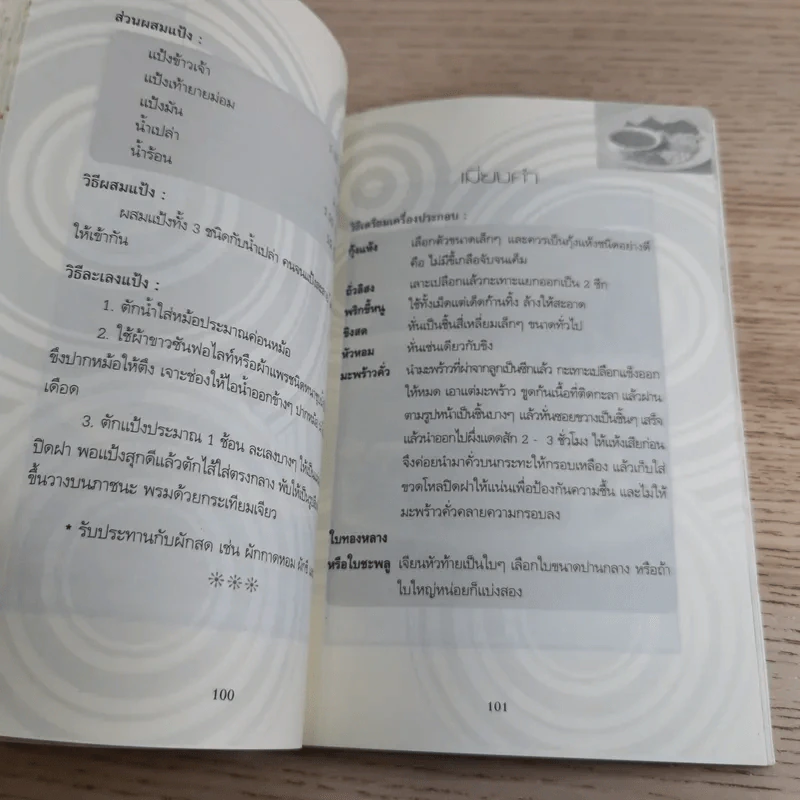 ส่วนผสมแป้ง :
แป้งข้าวเจ้า
แป้งเท้ายายม่อม
แป้งมัน
น้ำเปล่า
น้ำร้อน
วิธีผสมแป้ง :
ผสมแป้งทั้ง 3 ชนิดกับน้ำเปล่า คนจนแป้งละลาย
ให้เข้ากัน
วิธีละเลงแป้ง :
1. ตักน้ำใส่หม้อประมาณค่อนหม้อ
2. ใช้ผ้าขาวซันฟอไลท์หรือผ้าแพรชนิดหนา
ขึงปากหม้อให้ตึง เจาะช่องให้ไอน้ำออกข้างๆ ปากหม้อ
เดือด
3. ตักแป้งประมาณ 1 ช้อน ละเลงบางๆ ให้เป็น
ปิดฝา พอแป้งสุกดีแล้วตักไส้ใส่ตรงกลาง พับให้เป็น
ขึ้นวางบนภาชนะ พรมด้วยกระเทียมเจียว
* รับประทานกับผักสด เช่น ผักกาดหอม ผักชี
100
เมี่ยงคำ
วิธีเตรียมเครื่องประกอบ :
กุ้งแห้ง เลือกตัวขนาดเล็กๆ และควรเป็นกุ้งแห้งชนิดอย่างดี
คือ ไม่มีขี้เกลือจับจนเค็ม
ถั่วลิสง เลาะเปลือกแล้วกะเทาะแยกออกเป็น 2 ซีก
พริกขี้หนู ใช้ทั้งเม็ดแต่เด็ดก้านทิ้ง ล้างให้สะอาด
ขิงสด หั่นเป็นชิ้นสี่เหลี่ยมเล็กๆ ขนาดทั่วไป
หัวหอม หั่นเช่นเดียวกับขิง
มะพร้าวคั่ว นำมะพร้าวที่ผ่าจากลูกเป็นซีกแล้ว กะเทาะเปลือกแข็งออก
ให้หมด เอาแต่มะพร้าว ขูดก้นเนื้อที่ติดกะลา แล้วฝาน
ตามรูปหน้าเป็นชิ้นบางๆ แล้วหั่นซอยขวางเป็นชิ้นๆ เสร็จ
แล้วนำออกไปผึ่งแดดสัก 2 - 3 ชั่วโมง ให้แห้งเสียก่อน
จึงค่อยนำมาคั่วบนกระทะให้กรอบเหลือง แล้วเก็บใส่
ขวดโหลปิดฝาให้แน่นเพื่อป้องกันความชื้น และไม่ให้
มะพร้าวคั่วคลายความกรอบลง
ใบทองหลาง
หรือใบชะพลู เจียนหัวท้ายเป็นใบๆ เลือกใบขนาดปานกลาง หรือถ้า
ใบใหญ่หน่อยก็แบ่งสอง
101